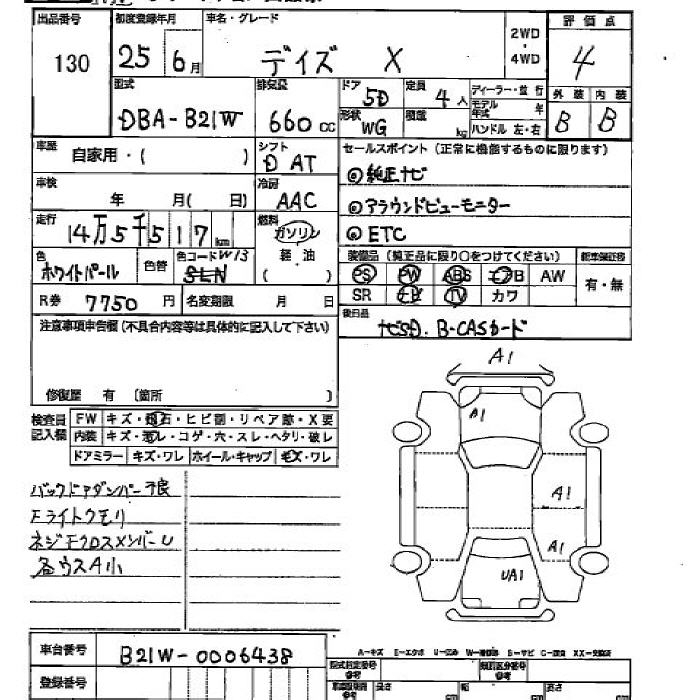 出品番号 初度登録年月 車名・グレード 2WD 評価点
130 25 6月 デイズ X ・4WD 4
型式 排気量 ドア 5D 定員 4人 ディーラー・並行 外装 内装
DBA-B21W 660cc 形状 WG 積載 kg モデル年式 年 B B
ハンドル 左・右
車歴 自家用・( ) シフト D AT セールスポイント(正常に機能するものに限ります)
◎純正ナビ
車検 年 月( 日) 冷房 AAC
◎アラウンドビューモニター
走行 14万5千517km 燃料 ガソリン
◎ETC
色 ホワイトパール 色替 色コード W13 軽・油 ( )
装備品(純正品に限り○をつけてください) 新車保証書
PS PW ABS エアB AW 有・無
R券 7750円 名変期限 月 日 SR ナビ TV カワ
注意事項申告欄(不具合内容等は具体的に記入して下さい) 後日品 ナビSD. B-CASカード
修復歴 有 〔箇所 〕
A1
A1
A1
A1
UA1
検査員記入欄 FW キズ・飛石・ヒビ割・リペア跡・X要
内装 キズ・汚レ・コゲ・穴・スレ・ヘタリ・破レ
ドアミラー キズ・ワレ ホイール・キャップ キズ・ワレ
バックドアダンパー不良
Fライトクモリ
ネジFクロスメンバーU
各ウスA小
A-キズ E-エクボ U-凹み W-補修跡 S-サビ C-腐食 XX-交換済
車台番号 B21W-0006438
型式指定番号 参考 類別区分番号 参考
登録番号 長さ cm 幅 cm 高さ cm